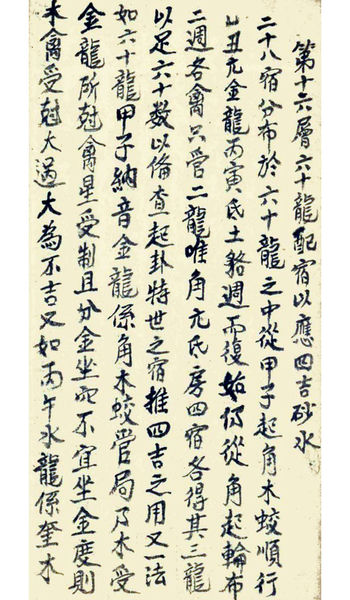 第十六層六十龍配宿以應四吉砂水
二十八宿分布於六十龍之中從甲子起角木蛟順行
乙丑亢金龍丙寅氐土貉週而復始仍從角起輪布
二週各禽只管二龍唯角亢氐房四宿各得其三龍
以足六十數以俻查起卦持世之宿推四吉之用又一法
如六十龍甲子納音金龍係角木蛟管局乃木受
金龍所尅禽星受制且分金坐宿不宜坐金度則
木禽受尅太過大為不吉又如丙午水龍係奎木